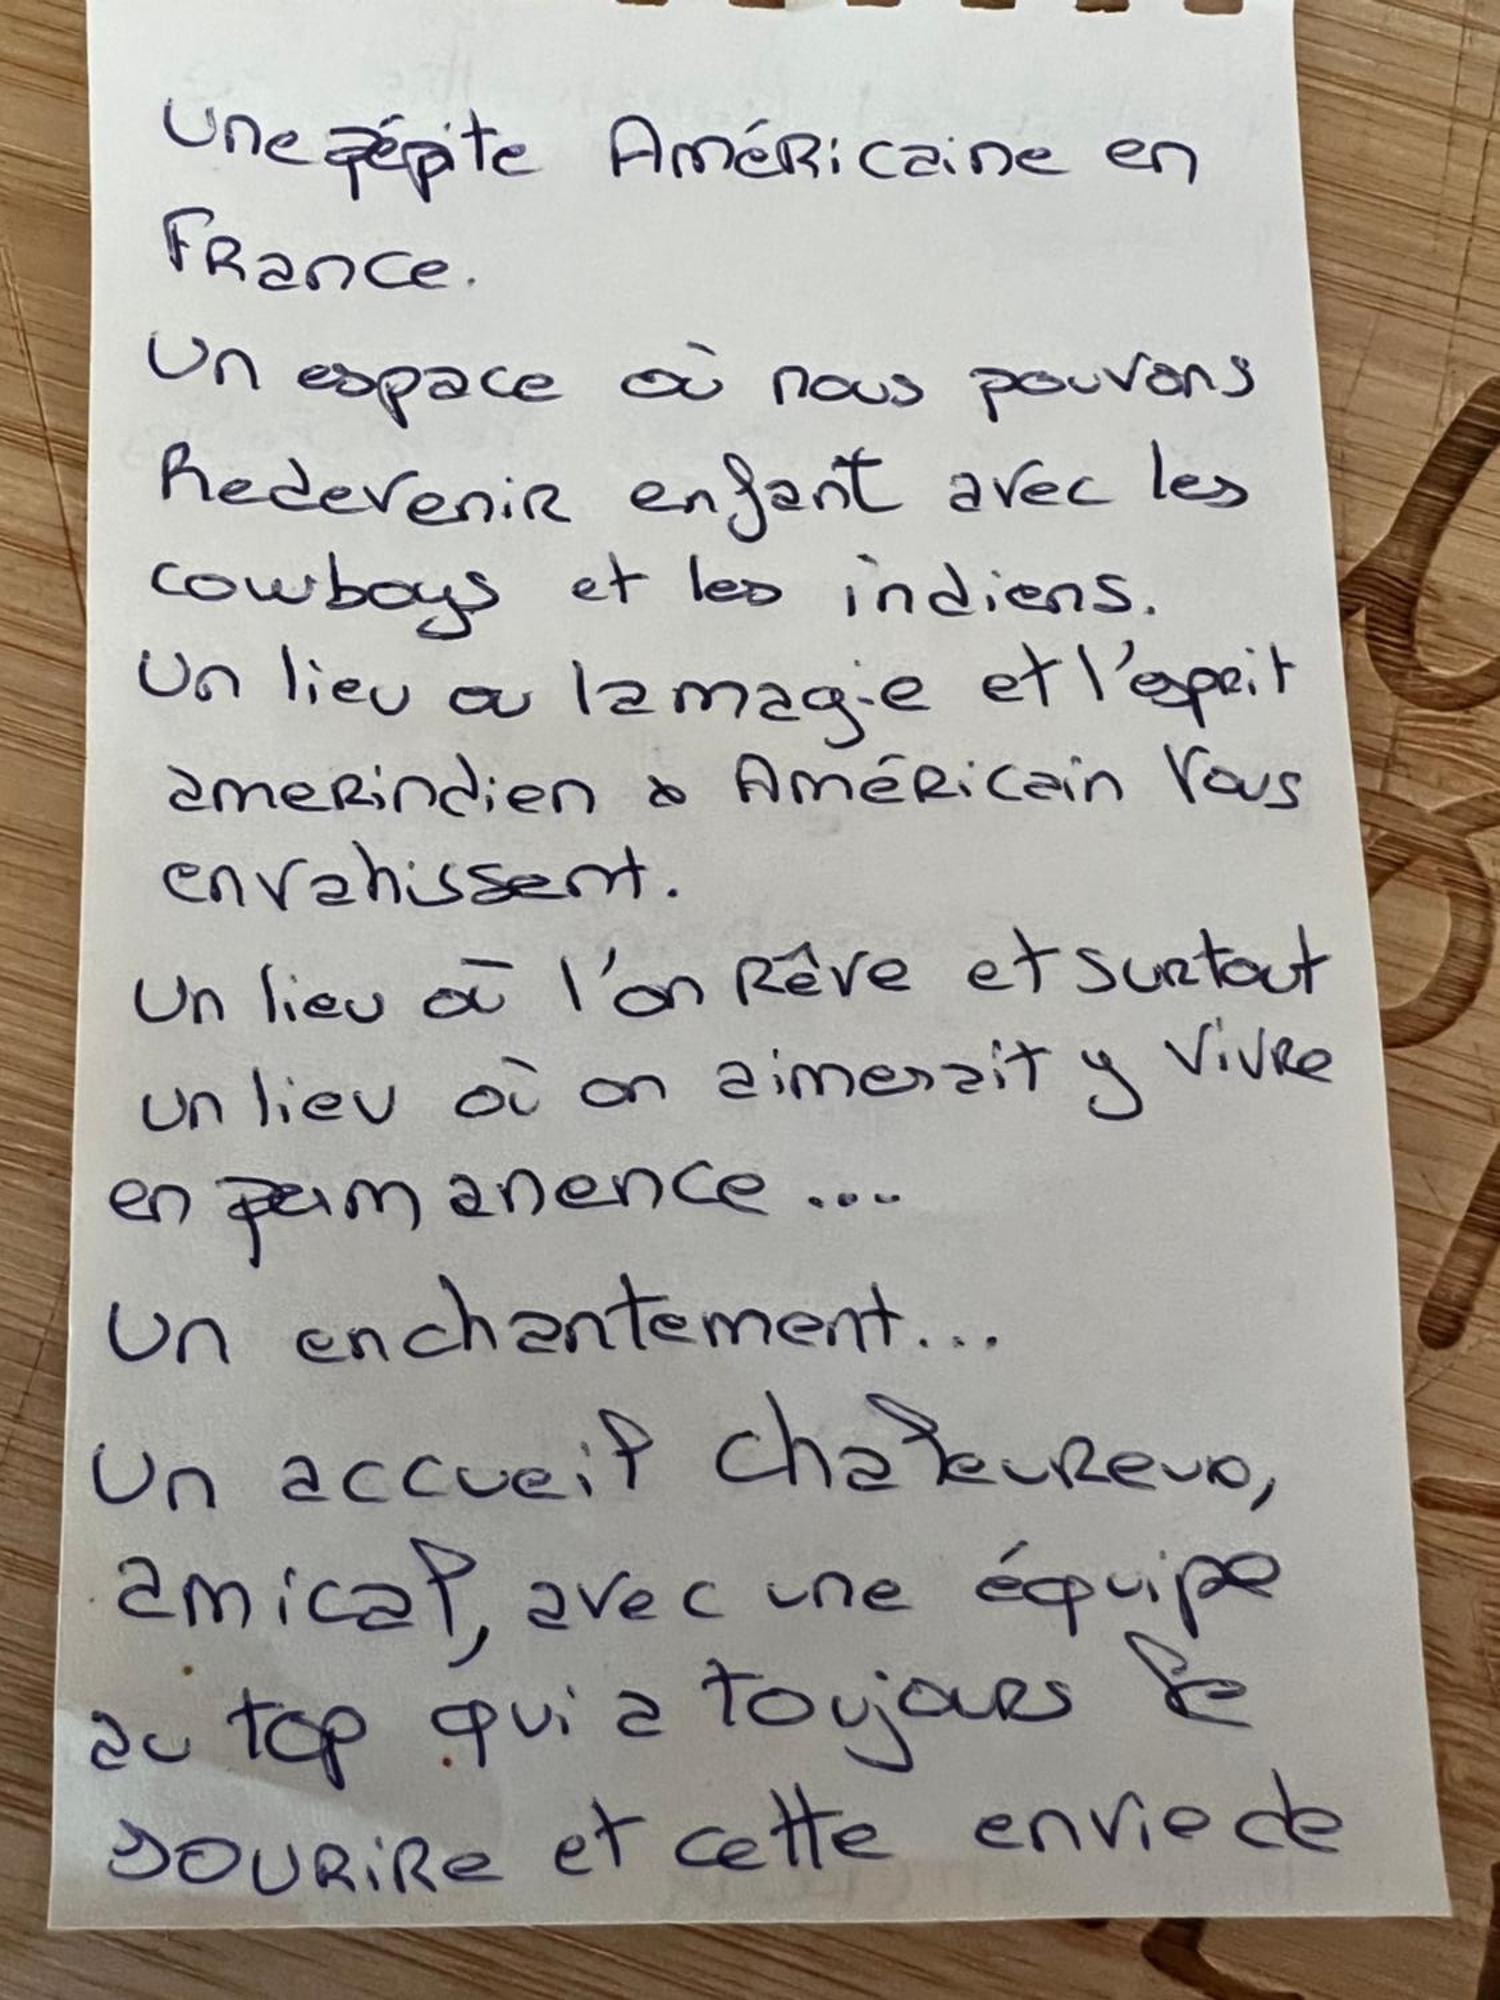 Une pépite Américaine en
France.
Un espace où nous pouvons
Redevenir enfant avec les
cowboys et les indiens.
Un lieu ou la magie et l'esprit
amerindien & Américain vous
envahissent.
Un lieu où l'on Rêve et surtout
un lieu où on aimerait y vivre
en permanence ....
Un enchantement...
Un accueil chaleureux,
amical, avec une équipe
au top qui a toujours le
sourire et cette envie de